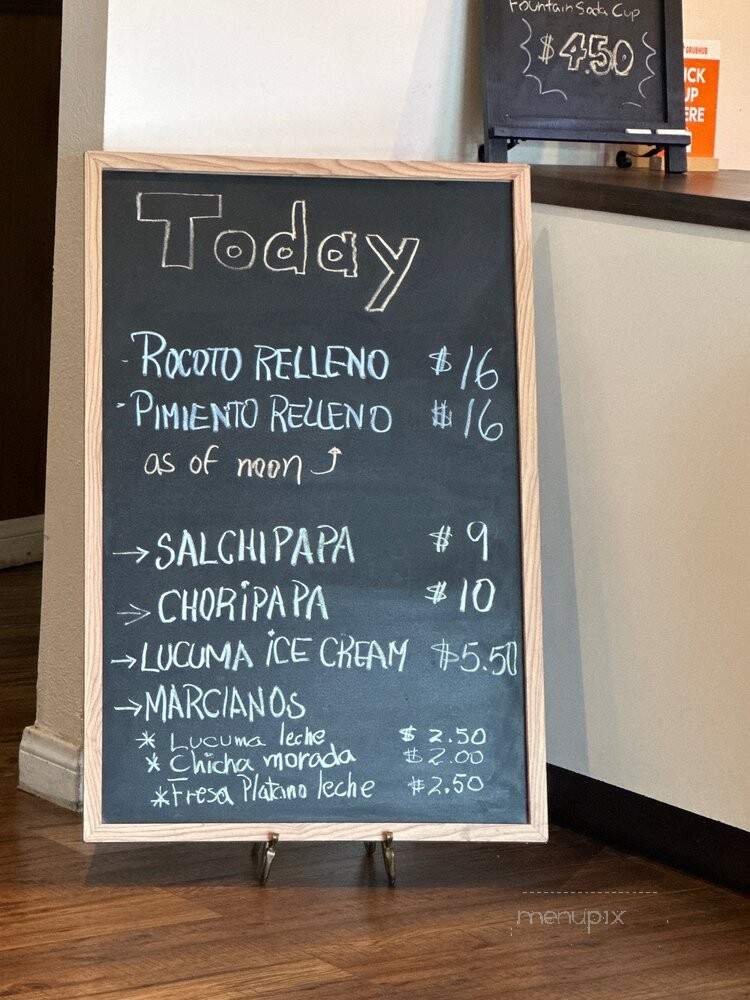 Fountain Soda Cup
$4.50
GRUBHUB
ICK
UP
ERE
Today
- ROCOTO RELLENO $16
- PIMIENTO RELLENO $16
as of noon
→ SALCHIPAPA $9
→ CHORIPAPA $10
→ LUCUMA ICE CREAM $5.50
→ MARCIANOS
* Lucuma leche $2.50
* Chicha morada $2.00
* Fresa Platano leche $2.50
menupix